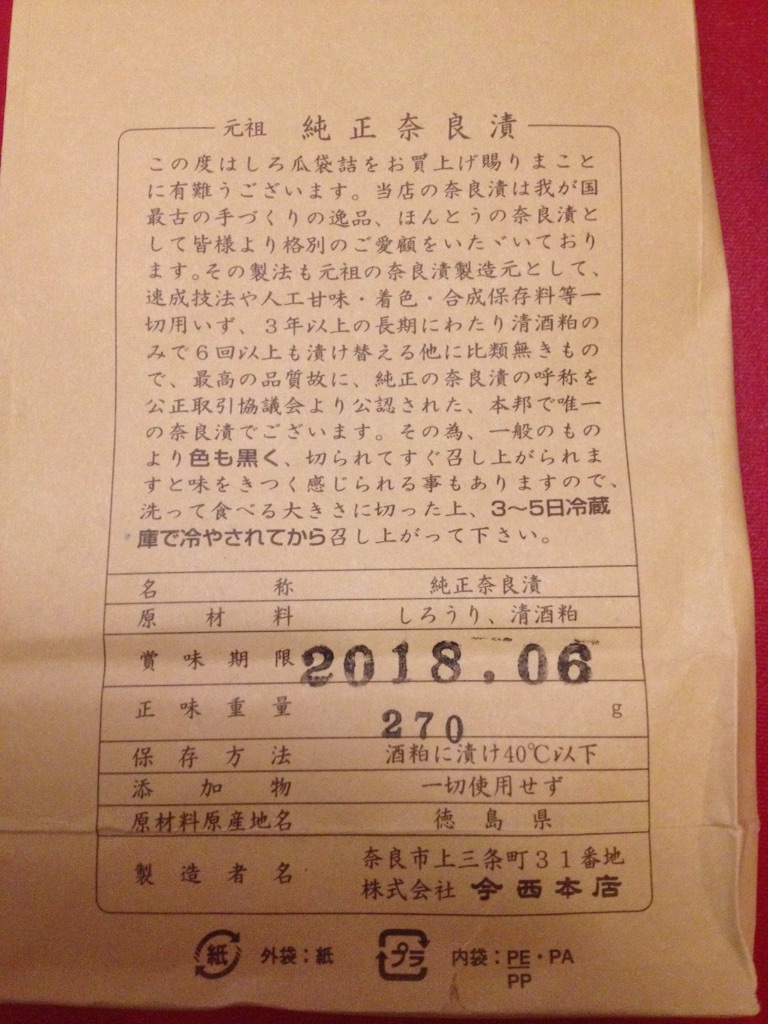 元祖 純正奈良漬
この度はしろ瓜袋詰をお買上げ賜りまこと
に有難うございます。当店の奈良漬は我が国
最古の手づくりの逸品、ほんとうの奈良漬と
して皆様より格別のご愛顧をいたゞいており
ます。その製法も元祖の奈良漬製造元として、
速成技法や人工甘味・着色・合成保存料等一
切用いず、3年以上の長期にわたり清酒粕の
みで6回以上も漬け替える他に比類無きもの
で、最高の品質故に、純正の奈良漬の呼称を
公正取引協議会より公認された、本邦で唯一
の奈良漬でございます。その為、一般のもの
より色も黒く、切られてすぐ召し上がられま
すと味をきつく感じられる事もありますので、
洗って食べる大きさに切った上、3〜5日冷蔵
庫で冷やされてから召し上がって下さい。
名称 純正奈良漬
原材料 しろうり、清酒粕
賞味期限 2018.06
正味重量 270 g
保存方法 酒粕に漬け40℃以下
添加物 一切使用せず
原材料原産地名 徳島県
製造者名 奈良市上三条町31番地
株式会社 今西本店
紙 外袋：紙 プラ 内袋：PE・PA
PP